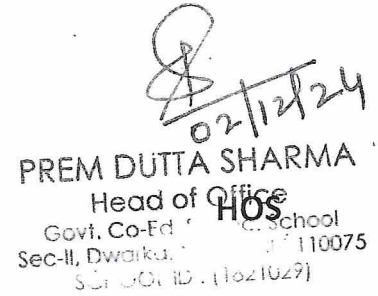 02/12/24
PREM DUTTA SHARMA
Head of Office
HOS
Govt. Co-Ed School
Sec-II, Dwarka, 110075
SCHOOL ID. (1821029)